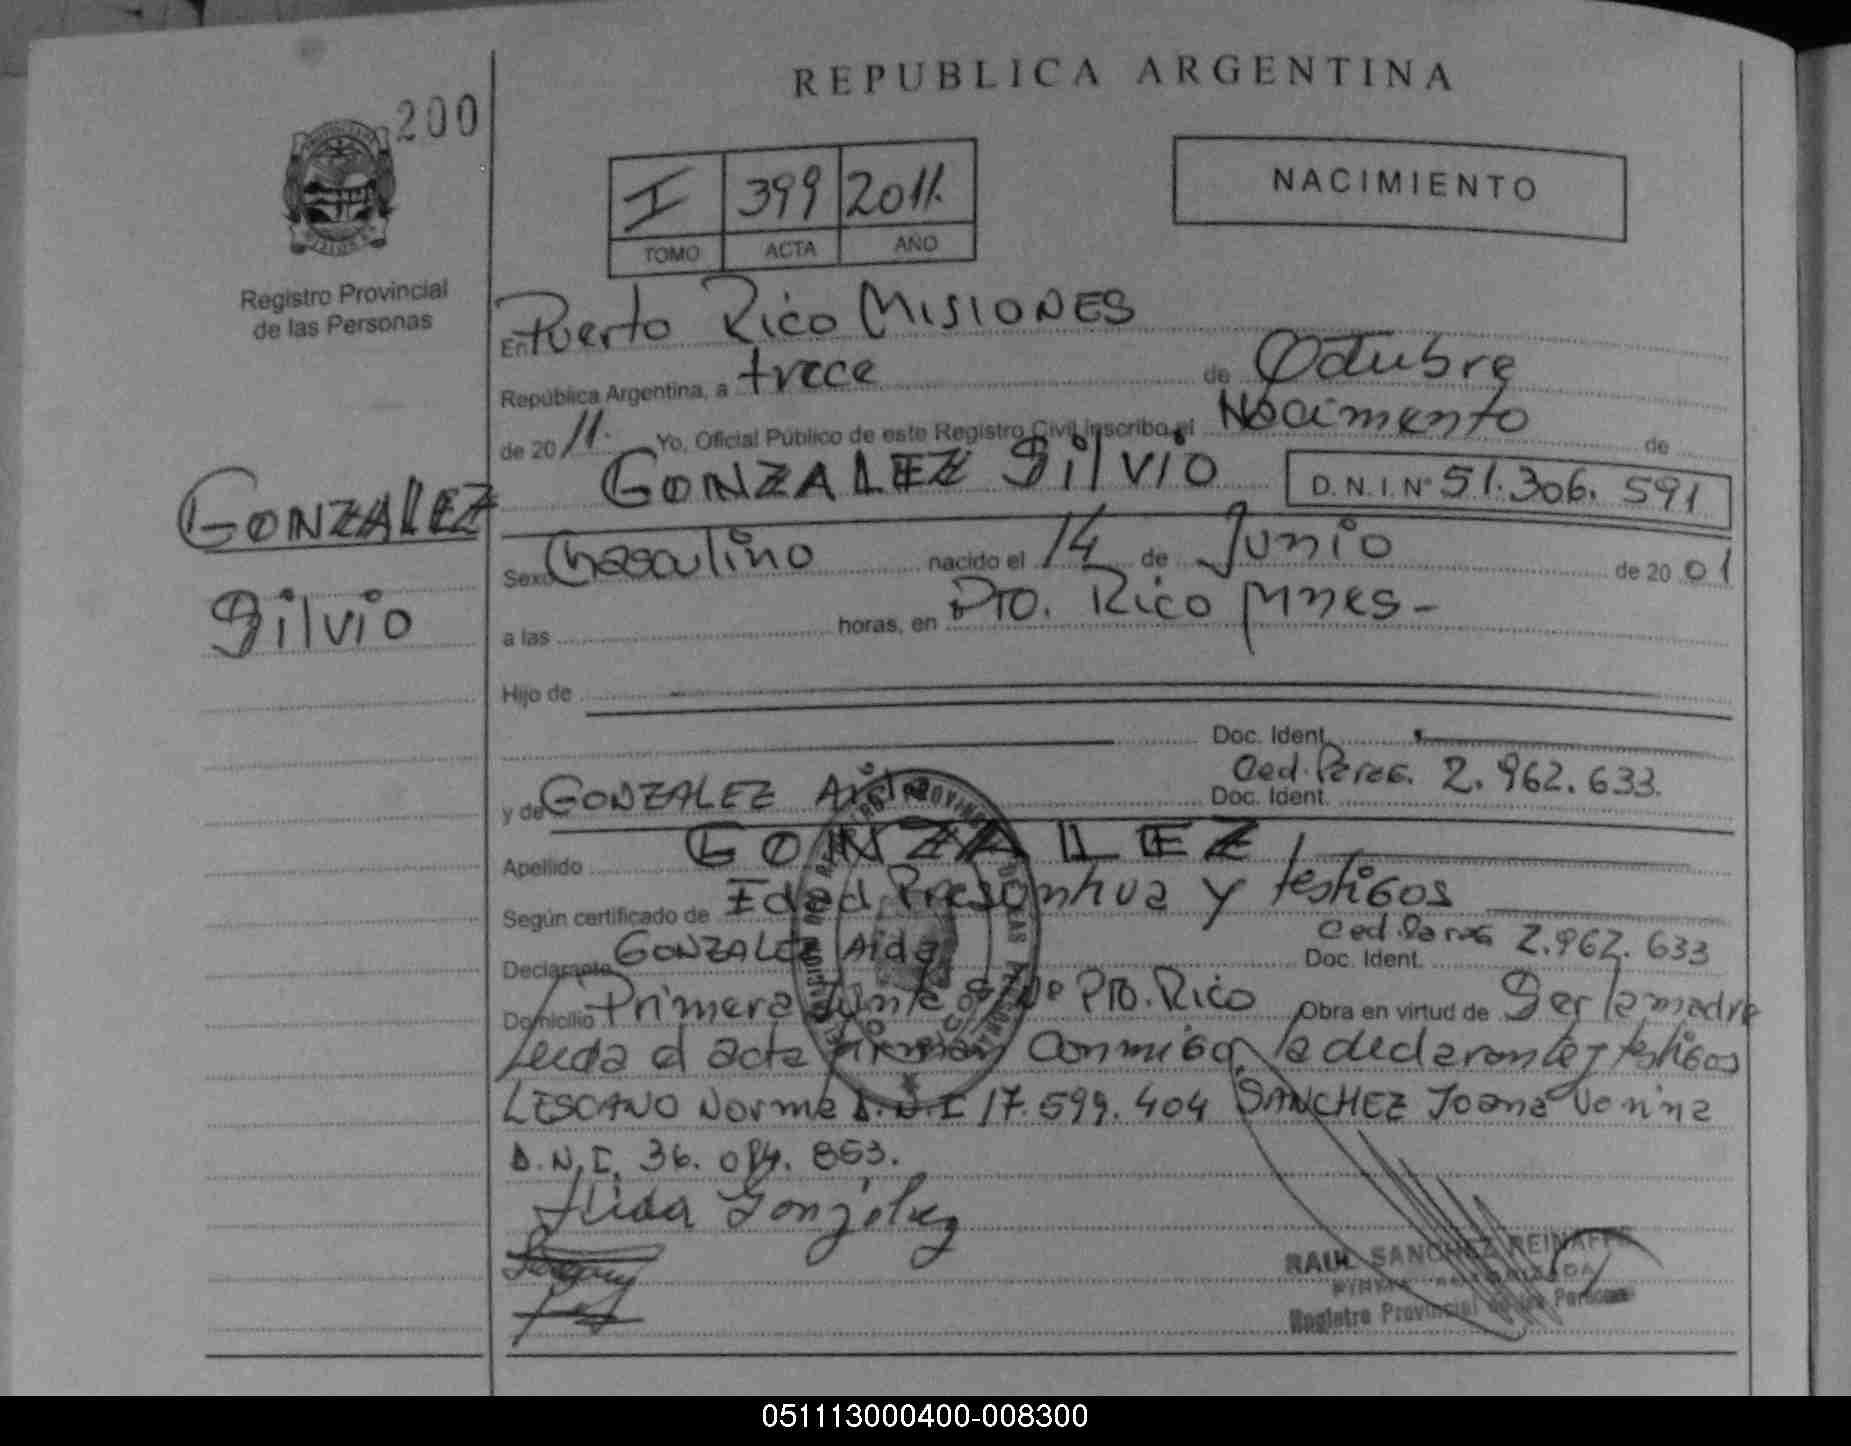 REPUBLICA ARGENTINA
200
I 399 2011.
TOMO ACTA AÑO
NACIMIENTO
Registro Provincial
de las Personas
En Puerto Rico MISIONES
República Argentina, a trece de Octubre
de 20 11. Yo, Oficial Público de este Registro Civil inscribo el Nacimento de
GONZALEZ Silvio D.N.I. N° 51.306.591
GONZALEZ
Silvio
Sexo Masculino nacido el 14 de Junio de 20 01
a las horas, en Pto. Rico Mnes-
Hijo de
Doc. Ident.
y de GONZALEZ Aida Ced. Parag. 2.962.633.
Doc. Ident.
Apellido GONZALEZ
Según certificado de Edad Presontiva y testigos
Declarante GONZALEZ Aida Ced. Parag 2.962.633
Doc. Ident.
Domicilio Primera Junta Pto. Rico Obra en virtud de Ser la madre
Leida el acta firman conmigo la declarante y testigos
LESCANO Norma D.N.I 17.599.404 SANCHEZ Joana
D.N.I. 36.084.853.
Aida González
RAUL SANCHEZ REINAFFE
FIRMA AUTORIZADA
Registro Provincial de las Personas
051113000400-008300